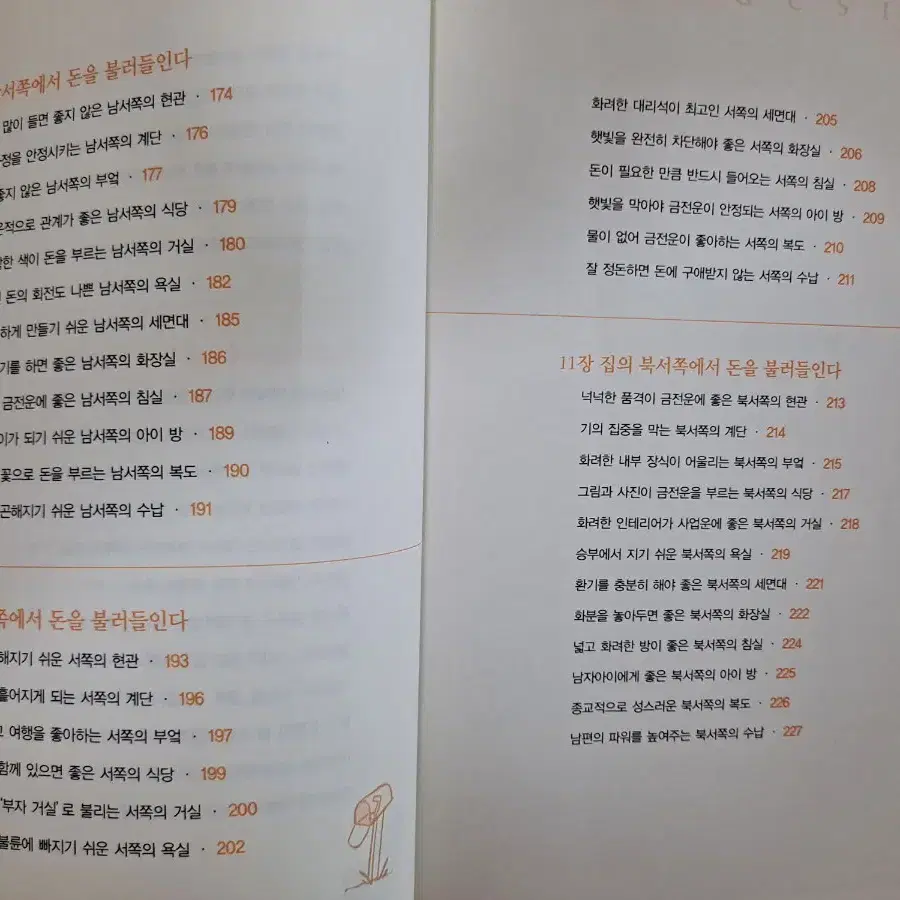 서쪽에서 돈을 불러들인다
많이 들면 좋지 않은 남서쪽의 현관 · 174
안정시키는 남서쪽의 계단 · 176
좋지 않은 남서쪽의 부엌 · 177
관계가 좋은 남서쪽의 식당 · 179
색이 돈을 부르는 남서쪽의 거실 · 180
돈의 회전도 나쁜 남서쪽의 욕실 · 182
하게 만들기 쉬운 남서쪽의 세면대 · 185
기를 하면 좋은 남서쪽의 화장실 · 186
금전운에 좋은 남서쪽의 침실 · 187
이가 되기 쉬운 남서쪽의 아이 방 · 189
꽃으로 돈을 부르는 남서쪽의 복도 · 190
곤해지기 쉬운 남서쪽의 수납 · 191
쪽에서 돈을 불러들인다
해지기 쉬운 서쪽의 현관 · 193
흩어지게 되는 서쪽의 계단 · 196
여행을 좋아하는 서쪽의 부엌 · 197
함께 있으면 좋은 서쪽의 식당 · 199
'부자 거실'로 불리는 서쪽의 거실 · 200
불륜에 빠지기 쉬운 서쪽의 욕실 · 202
화려한 대리석이 최고인 서쪽의 세면대 · 205
햇빛을 완전히 차단해야 좋은 서쪽의 화장실 · 206
돈이 필요한 만큼 반드시 들어오는 서쪽의 침실 · 208
햇빛을 막아야 금전운이 안정되는 서쪽의 아이 방 · 209
물이 없어 금전운이 좋아하는 서쪽의 복도 · 210
잘 정돈하면 돈에 구애받지 않는 서쪽의 수납 · 211
11장 집의 북서쪽에서 돈을 불러들인다
넉넉한 품격이 금전운에 좋은 북서쪽의 현관 · 213
기의 집중을 막는 북서쪽의 계단 · 214
화려한 내부 장식이 어울리는 북서쪽의 부엌 · 215
그림과 사진이 금전운을 부르는 북서쪽의 식당 · 217
화려한 인테리어가 사업운에 좋은 북서쪽의 거실 · 218
승부에서 지기 쉬운 북서쪽의 욕실 · 219
환기를 충분히 해야 좋은 북서쪽의 세면대 · 221
화분을 놓아두면 좋은 북서쪽의 화장실 · 222
넓고 화려한 방이 좋은 북서쪽의 침실 · 224
남자아이에게 좋은 북서쪽의 아이 방 · 225
종교적으로 성스러운 북서쪽의 복도 · 226
남편의 파워를 높여주는 북서쪽의 수납 · 227